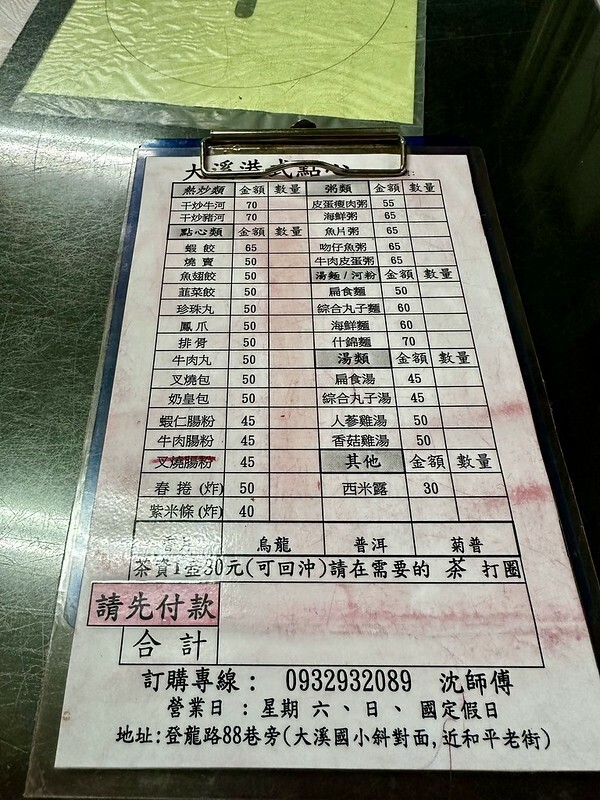 大溪港式點心
熱炒類 金額 數量 粥類 金額 數量
干炒牛河 70 皮蛋瘦肉粥 55
干炒豬河 70 海鮮粥 65
點心類 金額 數量 魚片粥 65
蝦餃 65 吻仔魚粥 65
燒賣 50 牛肉皮蛋粥 65
魚翅餃 50 湯麵/河粉 金額 數量
韮菜餃 50 扁食麵 50
珍珠丸 50 綜合丸子麵 60
鳳爪 50 海鮮麵 60
排骨 50 什錦麵 70
牛肉丸 50 湯類 金額 數量
叉燒包 50 扁食湯 45
奶皇包 50 綜合丸子湯 45
蝦仁腸粉 45 人蔘雞湯 50
牛肉腸粉 45 香菇雞湯 50
叉燒腸粉 45 其他 金額 數量
春捲(炸) 50 西米露 30
紫米條(炸) 40
烏龍 普洱 菊普
茶資1壺30元(可回沖)請在需要的 茶 打圈
請先付款
合計
訂購專線： 0932932089 沈師傅
營業日：星期六、日、國定假日
地址:登龍路88巷旁(大溪國小斜對面,近和平老街)